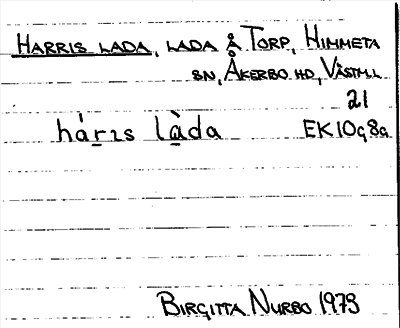 HARRIS LADA, LADA Å TORP, HIMMETA
SN, ÅKERBO HD, VÄSTM.L
21
hár̲ɪs là̲da EK10g8a
BIRGITTA NURBO 1973